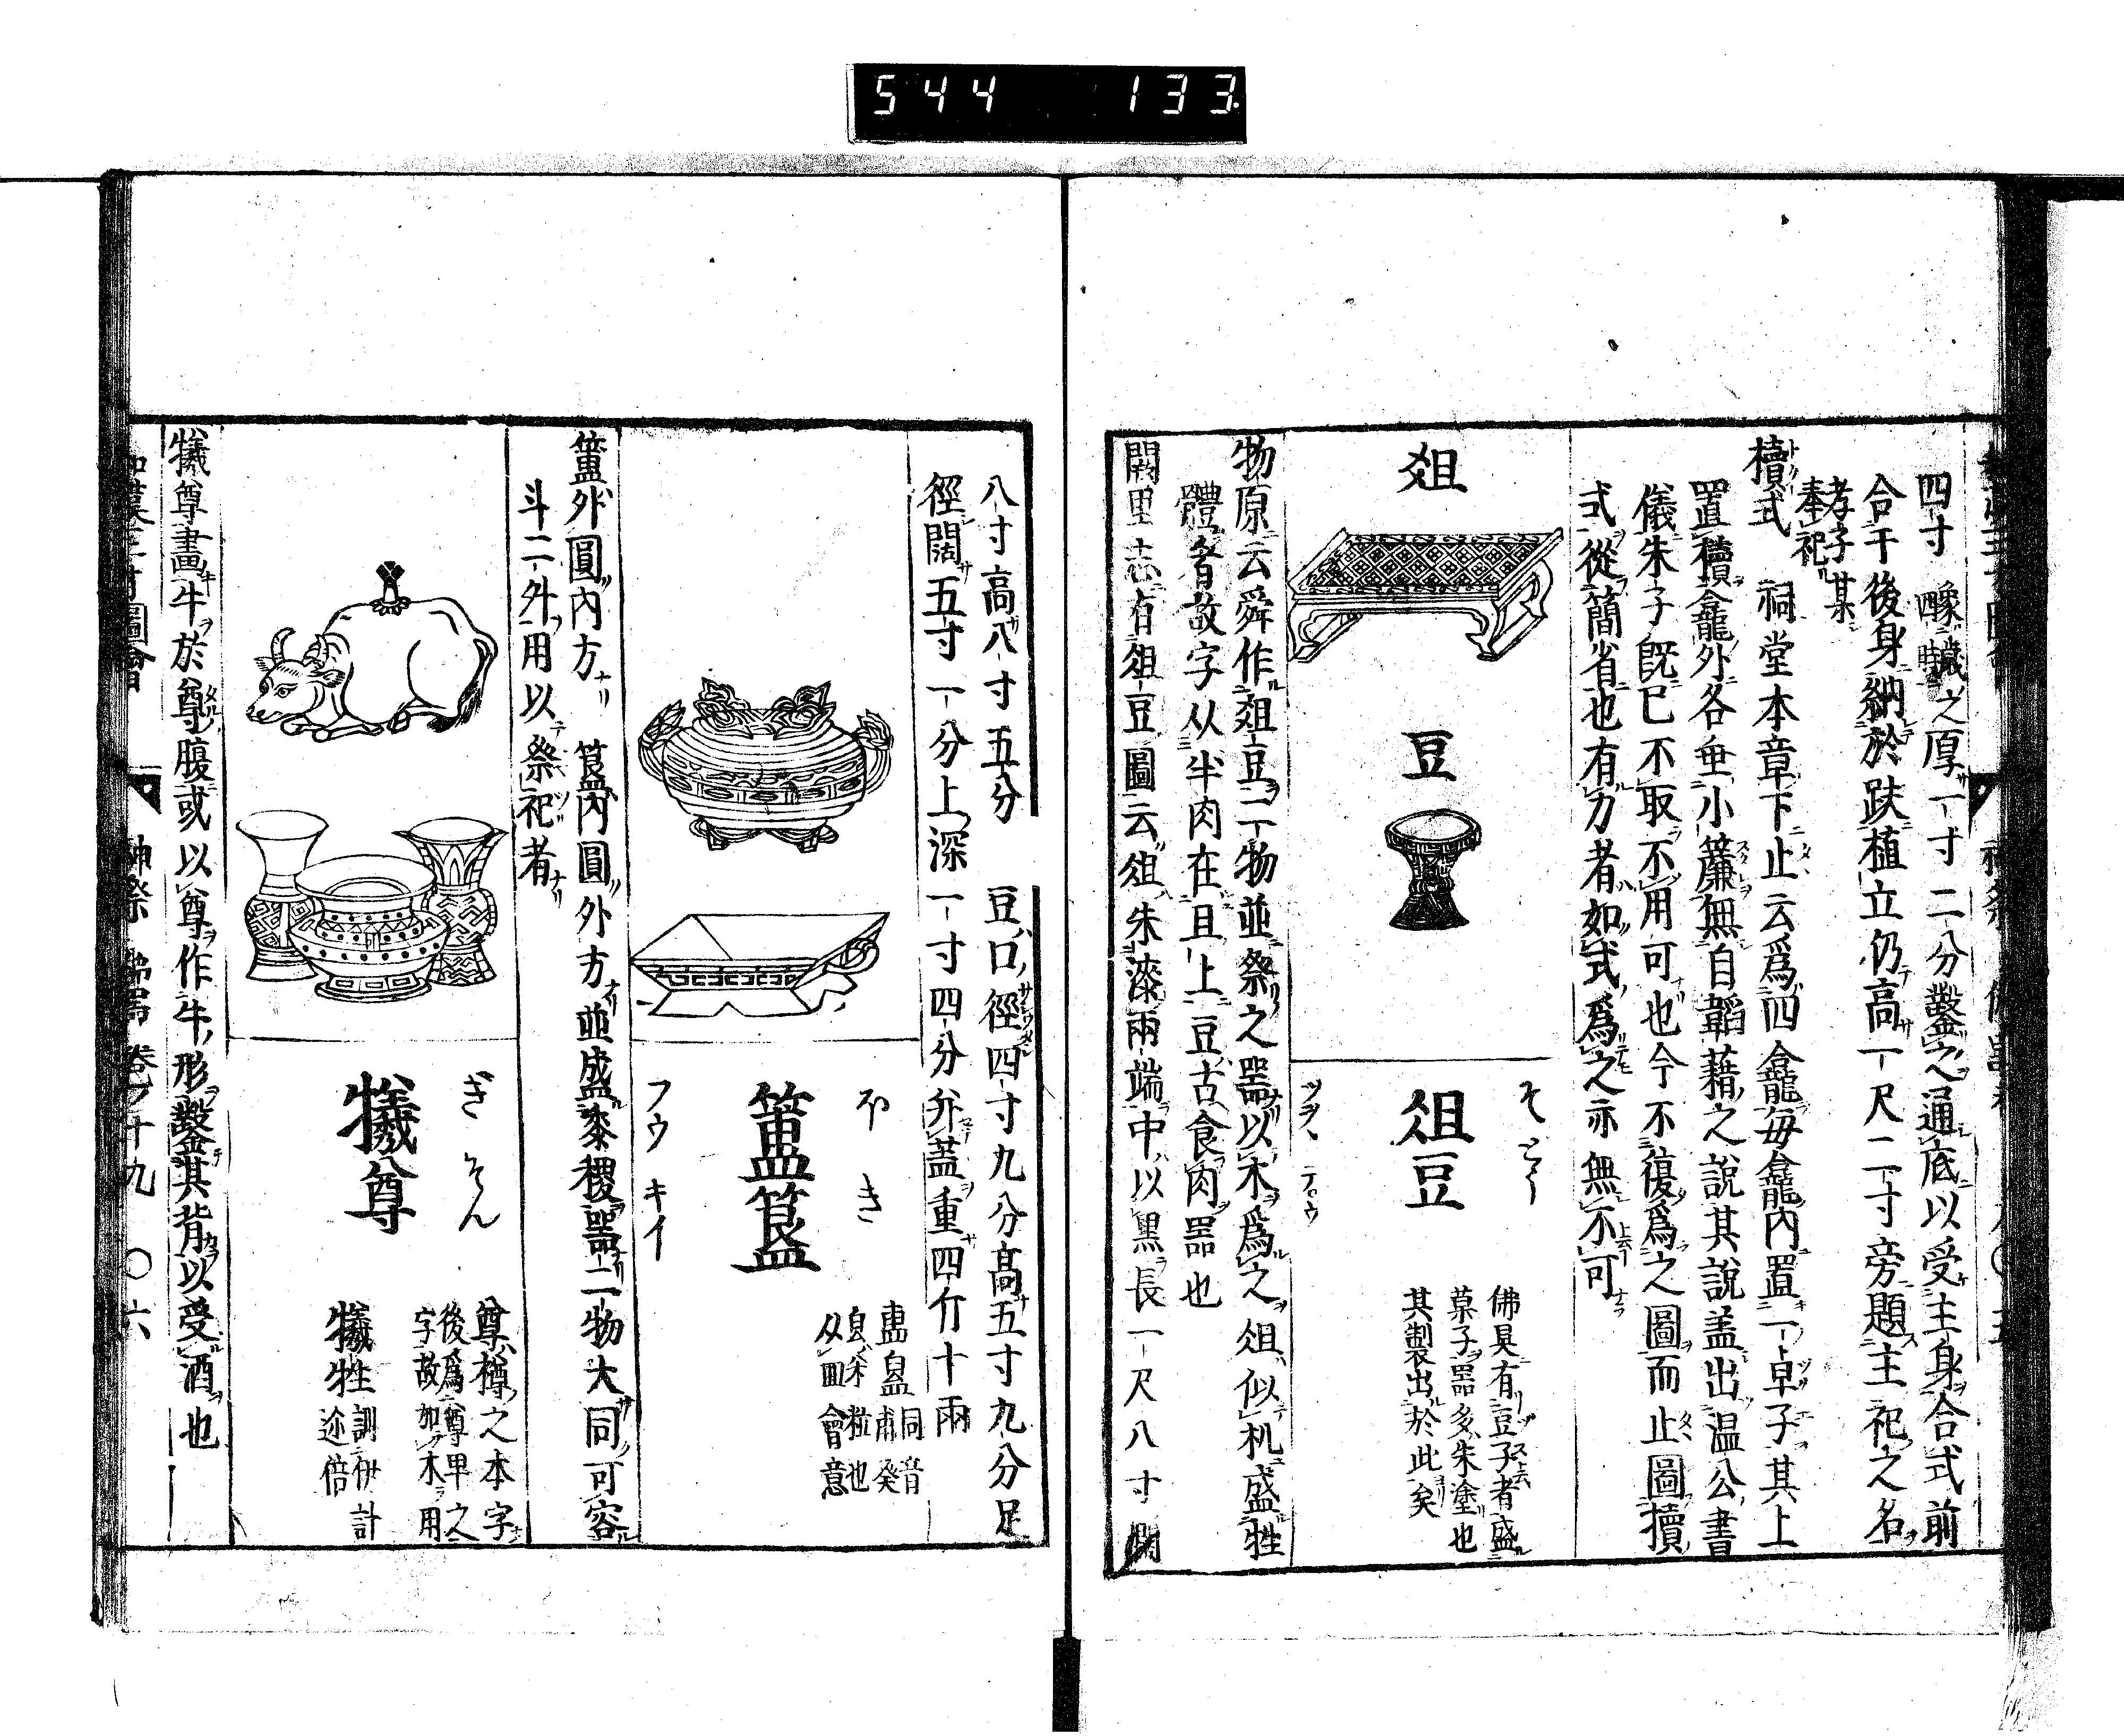 544 133.
四寸 象四時 之厚一寸二分鑿之通底以受主身合式前
合于後身納於趺植立仍高一尺二寸旁題主祀之名
孝子某
奉祀
櫝式 祠堂本章下止云爲四龕毎龕內置一卓子其上
置櫝龕外各垂小簾無自韜藉之說其說盖出温公書
儀朱子既已不取不用可也今不復爲之圖而止圖櫝
式從簡省也有力者如式爲之亦無不可
俎
豆
そとう
俎豆
ツヲヽ テ○ウ
佛具有豆子者盛
菓子器多朱塗也
其製出於此矣
物原云舜作俎豆二物並祭之器以木爲之 俎似机盛牲
體者故字从半肉在且上豆古食肉器也
闕里志有俎豆圖云俎朱漆兩端中以黒長一尺八寸濶
八寸高八寸五分 豆口徑四寸九分高五寸九分足
徑闊五寸一分上深一寸四分并蓋重四斤十兩
ほき
簠簋
フウ キイ
同音甫癸
皀米粒也
从皿會意
簠外圓內方 簋內圓外方並盛黍稷器二物大同可容
斗二外用以祭祀者
ぎそん
犧尊
尊樽之本字
後爲尊卑之
字故如木用
犧牲 訓伊計邇倍
犧尊畫牛於尊腹或以尊作牛形鑿其背以受酒也
和漢三才圖會 神祭 佛器 卷之十九 〇六